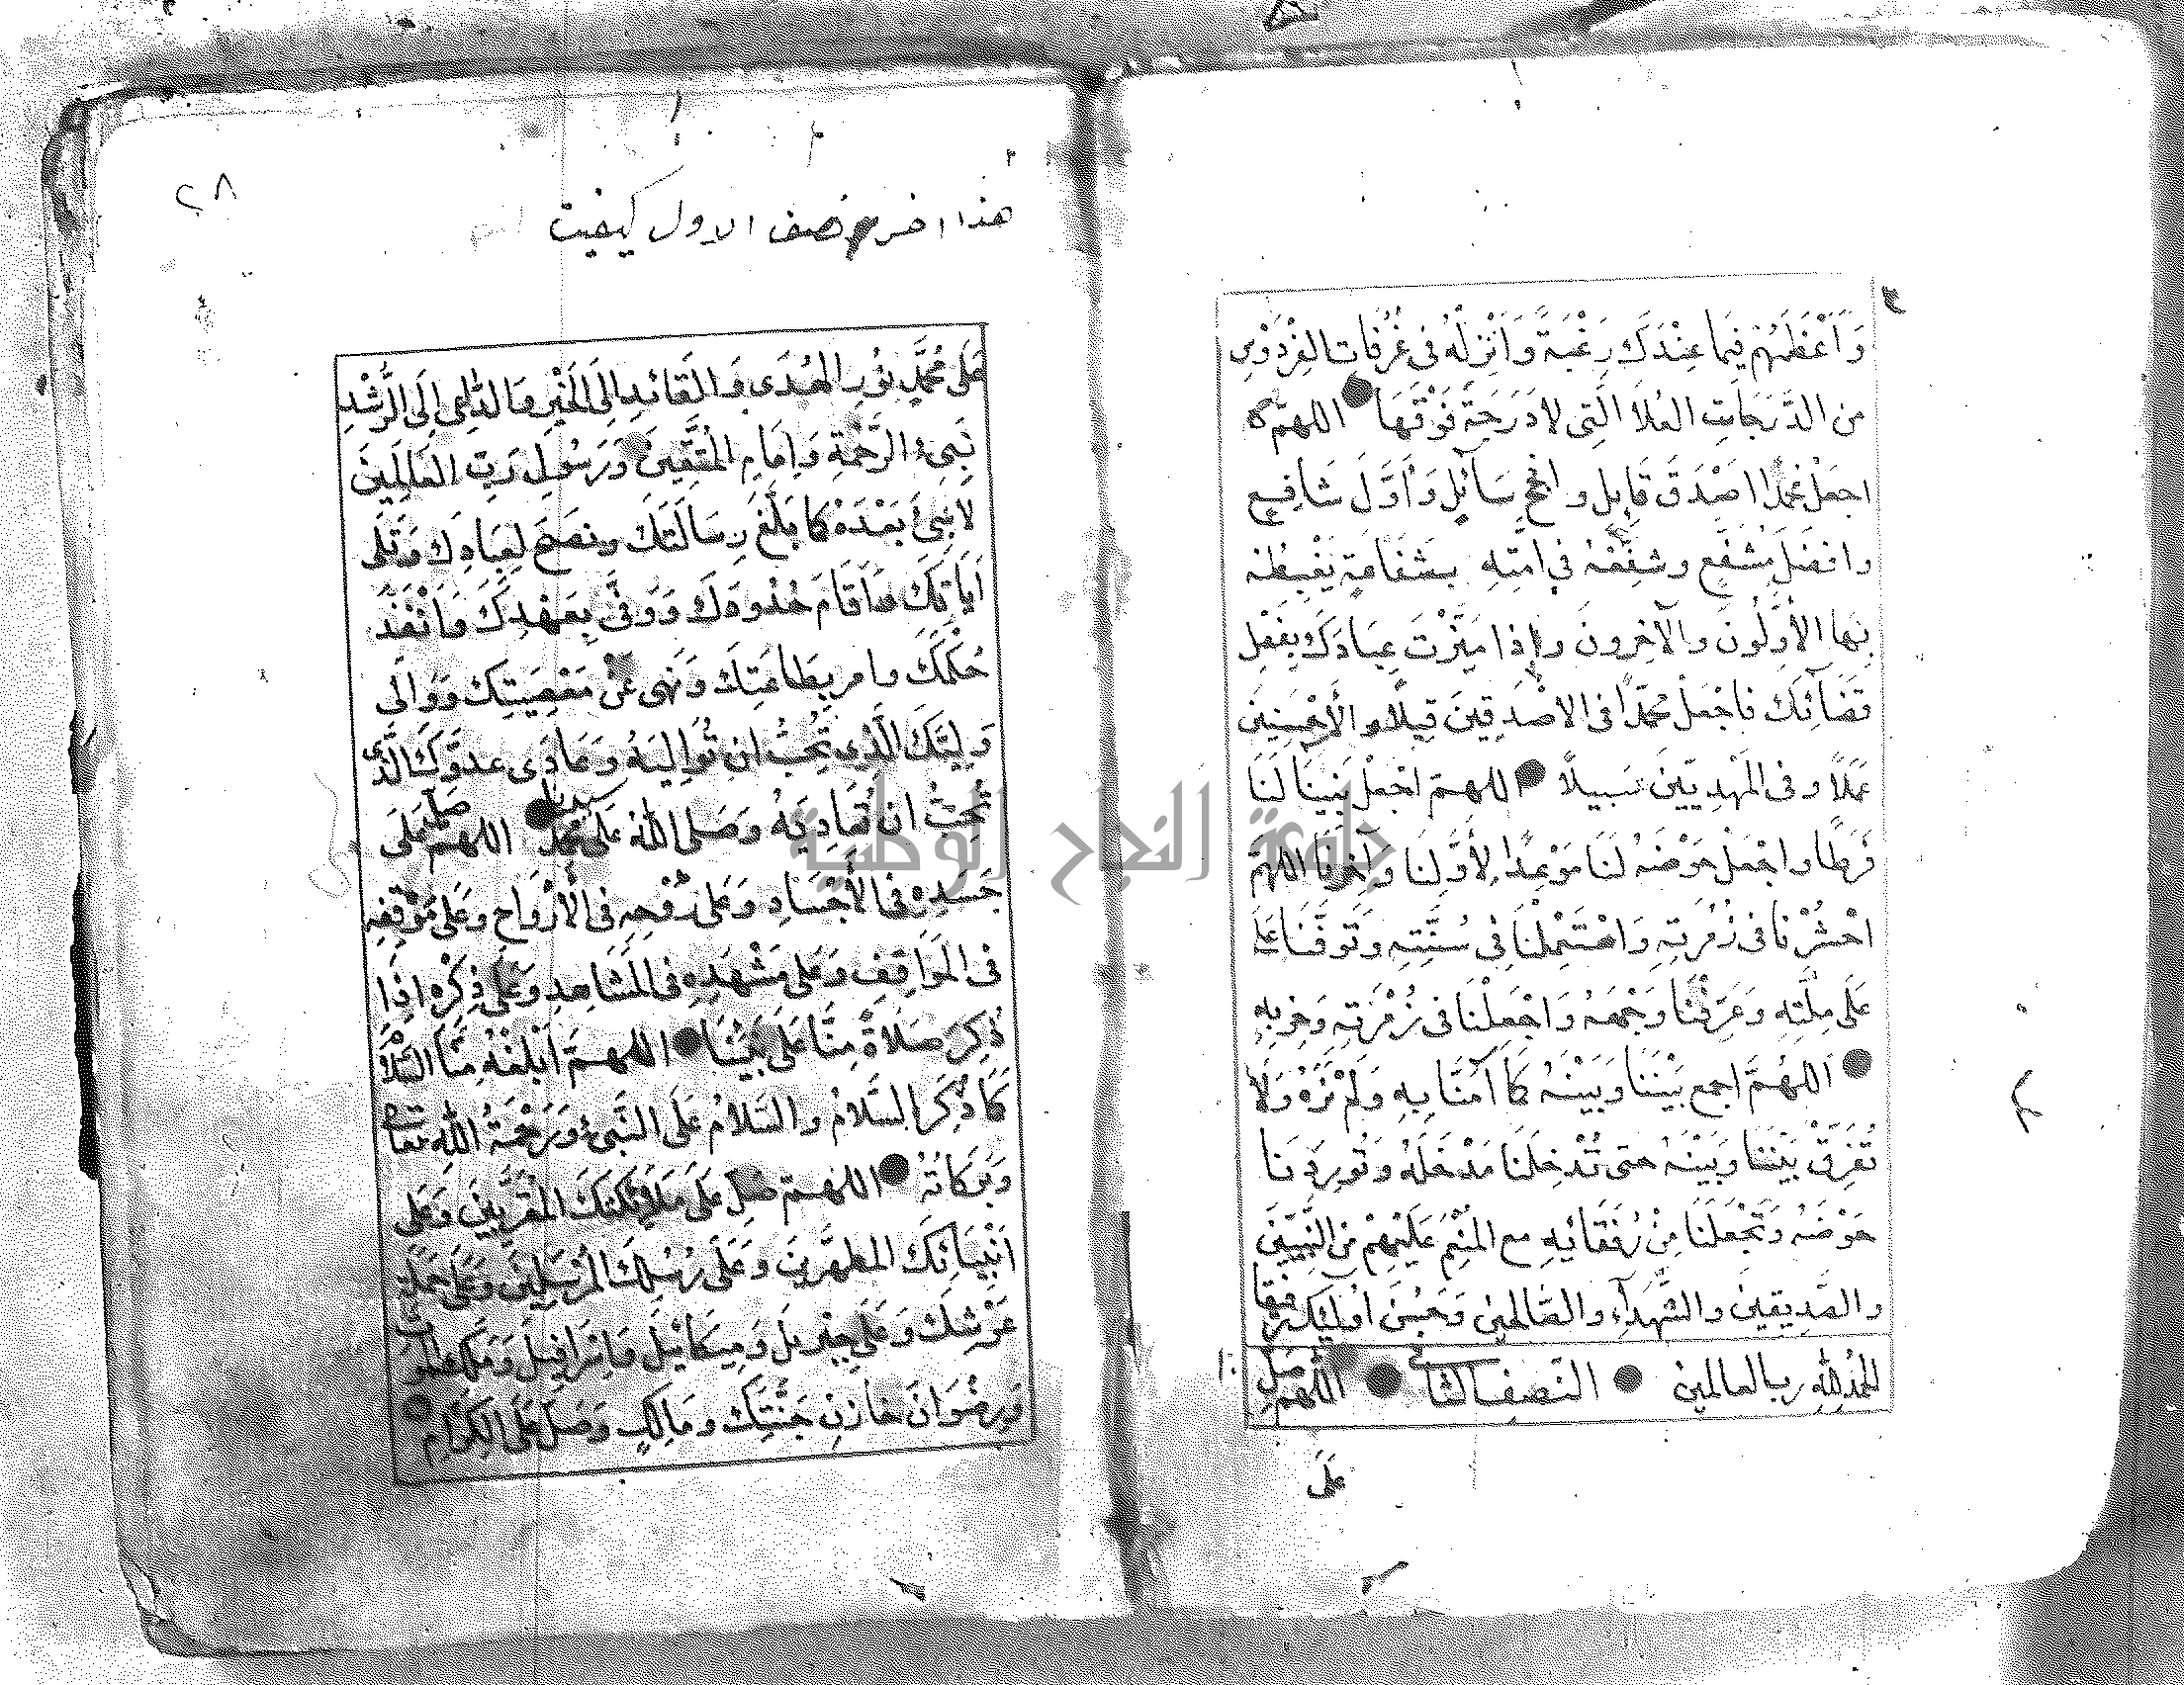 وَأَعْظَمَهُمْ فِيمَا عِنْدَكَ رَغْبَةً وَأَنْزِلْهُ فِي غُرُفَاتِ الفِرْدَوْسِ
مِن الدَّرَجَاتِ العُلَا الَّتِي لَا دَرَجَةَ فَوْقَهَا اللهم
اجعَلْ مُحَمَّدًا اصْدَقَ قَايِلٍ وانجَحَ سَآئِلٍ وَأَوَّلَ شَافِعٍ
وافضَلَ مُشَفَّعٍ وشَفِّعْهُ فِي امَّتِهِ بِشَفَاعَةٍ يَغْبِطُهُ
بِهَا الأَوَّلُونَ والآخِرُونَ وإِذا مَيَّزْتَ عِبَادَكَ بِفَصْلِ
قَضَآئِكَ فَاجْعَلْ مُحَمَّدًا فِي الاصْدَقِينَ قِيلًا والأَحْسَنِينَ
عَمَلًا وفي المَهْدِيِّينَ سَبِيلًا اللهمَّ اجْعَلْ نَبِيَّنَا لَنَا
فَرَطًا واجْعَلْ حَوْضَهُ لَنَا مَوْعِدًا لِأَوَّلِنَا وَآخِرِنَا اللهمَّ
احْشُرْنَا فِي زُمْرَتِهِ وَاسْتَعْمِلْنَا فِي سُنَّتِهِ وَتَوَفَّنَا عَلَى
عَلَى مِلَّتِهِ وَعَرِّفْنَا وَجْهَهُ وَاجْعَلْنَا فِي زُمْرَتِهِ وَحِزْبِهِ
اللهُمَّ اجمع بَيْنَنَا وَبَيْنَهُ كَمَا آمَنَّا بِهِ وَلَمْ نَرَهُ وَلَا
تُفَرِّقْ بَيْنَنَا وَبَيْنَهُ حتى تُدْخِلَنَا مَدْخَلَهُ وَتُورِدَنَا
حَوْضَهُ وَتَجْعَلَنَا مِنْ رُفَقَائِهِ مع المُنْعَمِ عَلَيْهِمْ مِنَ النَّبِيِّينَ
والصِّدِّيقِينَ والشُّهَدَآءِ والصَّالِحِينَ وَحَسُنَ اُولَئِكَ رَفِيقًا
الحَمْدُ لِلَّهِ رب العالمين النِّصفُ الثاني اللهم صَلِّ
عَلَى
٢٨
هذا اخر نصف الاول كيفيت
عَلَى مُحَمَّدٍ نُورِ الهُدَى وَالقَائِدِ إِلَى الخَيْرِ وَالدَّاعِي إِلَى الرُّشْدِ
نَبِيِّ الرَّحْمَةِ وَإِمَامِ المُتَّقِينَ وَرَسُولِ رَبِّ العَالَمِينَ
لَا نَبِيَّ بَعْدَهُ كَمَا بَلَّغَ رِسَالَتَكَ ونَصَحَ لِعِبَادِكَ وَتَلَى
آيَاتِكَ وَأَقَامَ حُدُودَكَ وَوَفَّى بِعَهْدِكَ وَأَنْفَذَ
حُكْمَكَ وامر بِطَاعَتِكَ وَنَهَى عَنْ مَعْصِيَتِكَ وَوَالَى
وَلِيَّكَ الَّذِي تُحِبُّ ان تُوَالِيَهُ وَعَادَى عدوَّكَ الَّذِي
تُحِبُّ ان تُعَادِيَهُ وَصَلى اللهُ عَلَى سيدنا مُحَمَّدٍ اللهم صَلِّ عَلَى
جَسَدِهِ فِي الأَجْسَادِ وَعَلَى رُوحِهِ فِي الأَرْوَاحِ وعَلَى مَوْقِفِهِ
فِي المَوَاقِفِ وَعَلَى مَشْهَدِهِ فِي المَشَاهِدِ وَعَلَى ذِكْرِهِ اِذَا
ذُكِرَ صَلَاةً مِنَّا عَلَى نَبِيِّنَا اللهمَّ اَبْلِغْهُ مِنَّا السَّلَامَ
كَمَا ذُكِرَ السَّلَامُ والسَّلَامُ عَلَى النَّبِيِّ وَرَحْمَةُ اللهِ تعالى
وَبَرَكَاتُهُ اللهم صَلِّ عَلَى مَلَائِكَتِكَ المُقَرَّبِينَ وَعَلَى
اَنْبِيَائِكَ المطهَّرِينَ وَعَلَى رُسُلِكَ المُرْسَلِينَ وَعَلَى حَمَلَةِ
عَرْشِكَ وَعَلَى جِبْرِيلَ وَمِيكَائِيلَ وَاِسْرَافِيلَ وَمَلَكِ الموت
وَرِضْوَانَ خَازِنِ جَنَّتِكَ ومَالِكٍ وَصَلِّ عَلَى الكِرَامِ
جامعة النجاح الوطنية